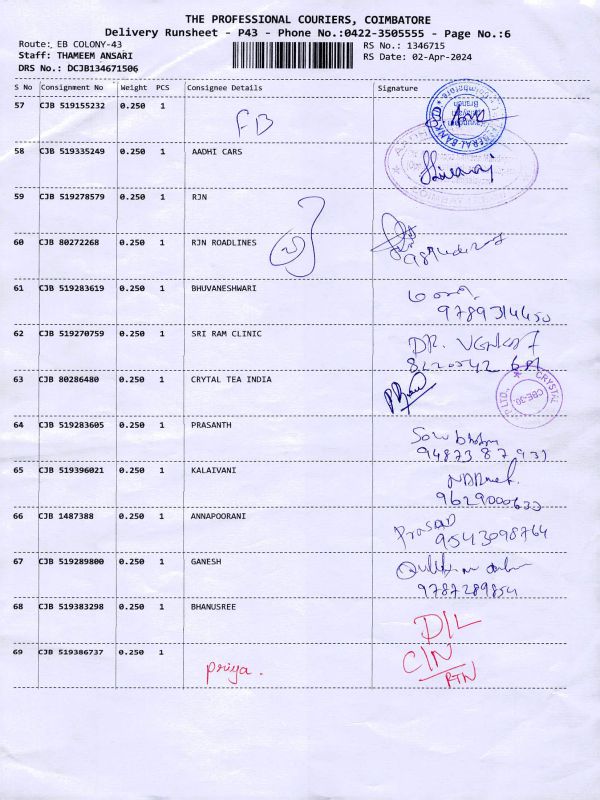 THE PROFESSIONAL COURIERS, COIMBATORE
Delivery Runsheet - P43 - Phone No.:0422-3505555 - Page No.:6
Route: EB COLONY-43 RS No.: 1346715
Staff: THAMEEM ANSARI RS Date: 02-Apr-2024
DRS No.: DCJB134671506
S No Consignment No Weight PCS Consignee Details Signature
57 CJB 519155232 0.250 1 FB
58 CJB 519335249 0.250 1 AADHI CARS
59 CJB 519278579 0.250 1 RJN
60 CJB 80272268 0.250 1 RJN ROADLINES
61 CJB 519283619 0.250 1 BHUVANESHWARI
9789314450
62 CJB 519270759 0.250 1 SRI RAM CLINIC DR.
63 CJB 80286480 0.250 1 CRYTAL TEA INDIA CRYSTAL P LTD., CBE-30.
64 CJB 519283605 0.250 1 PRASANTH
9487387931
65 CJB 519396021 0.250 1 KALAIVANI
9629000633
66 CJB 1487388 0.250 1 ANNAPOORANI Prasad
9543098764
67 CJB 519289800 0.250 1 GANESH
9787289854
68 CJB 519383298 0.250 1 BHANUSREE D/L
69 CJB 519386737 0.250 1 priya. C/N
RTN